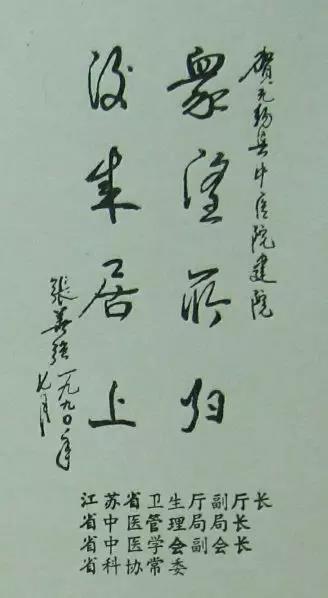 贺无锡县中医院建院
衆望所归
後来居上
張善强一九九〇年
七月
江苏省卫生厅副厅长
省中医管理局局长
省中医学会副会长
省科协常委